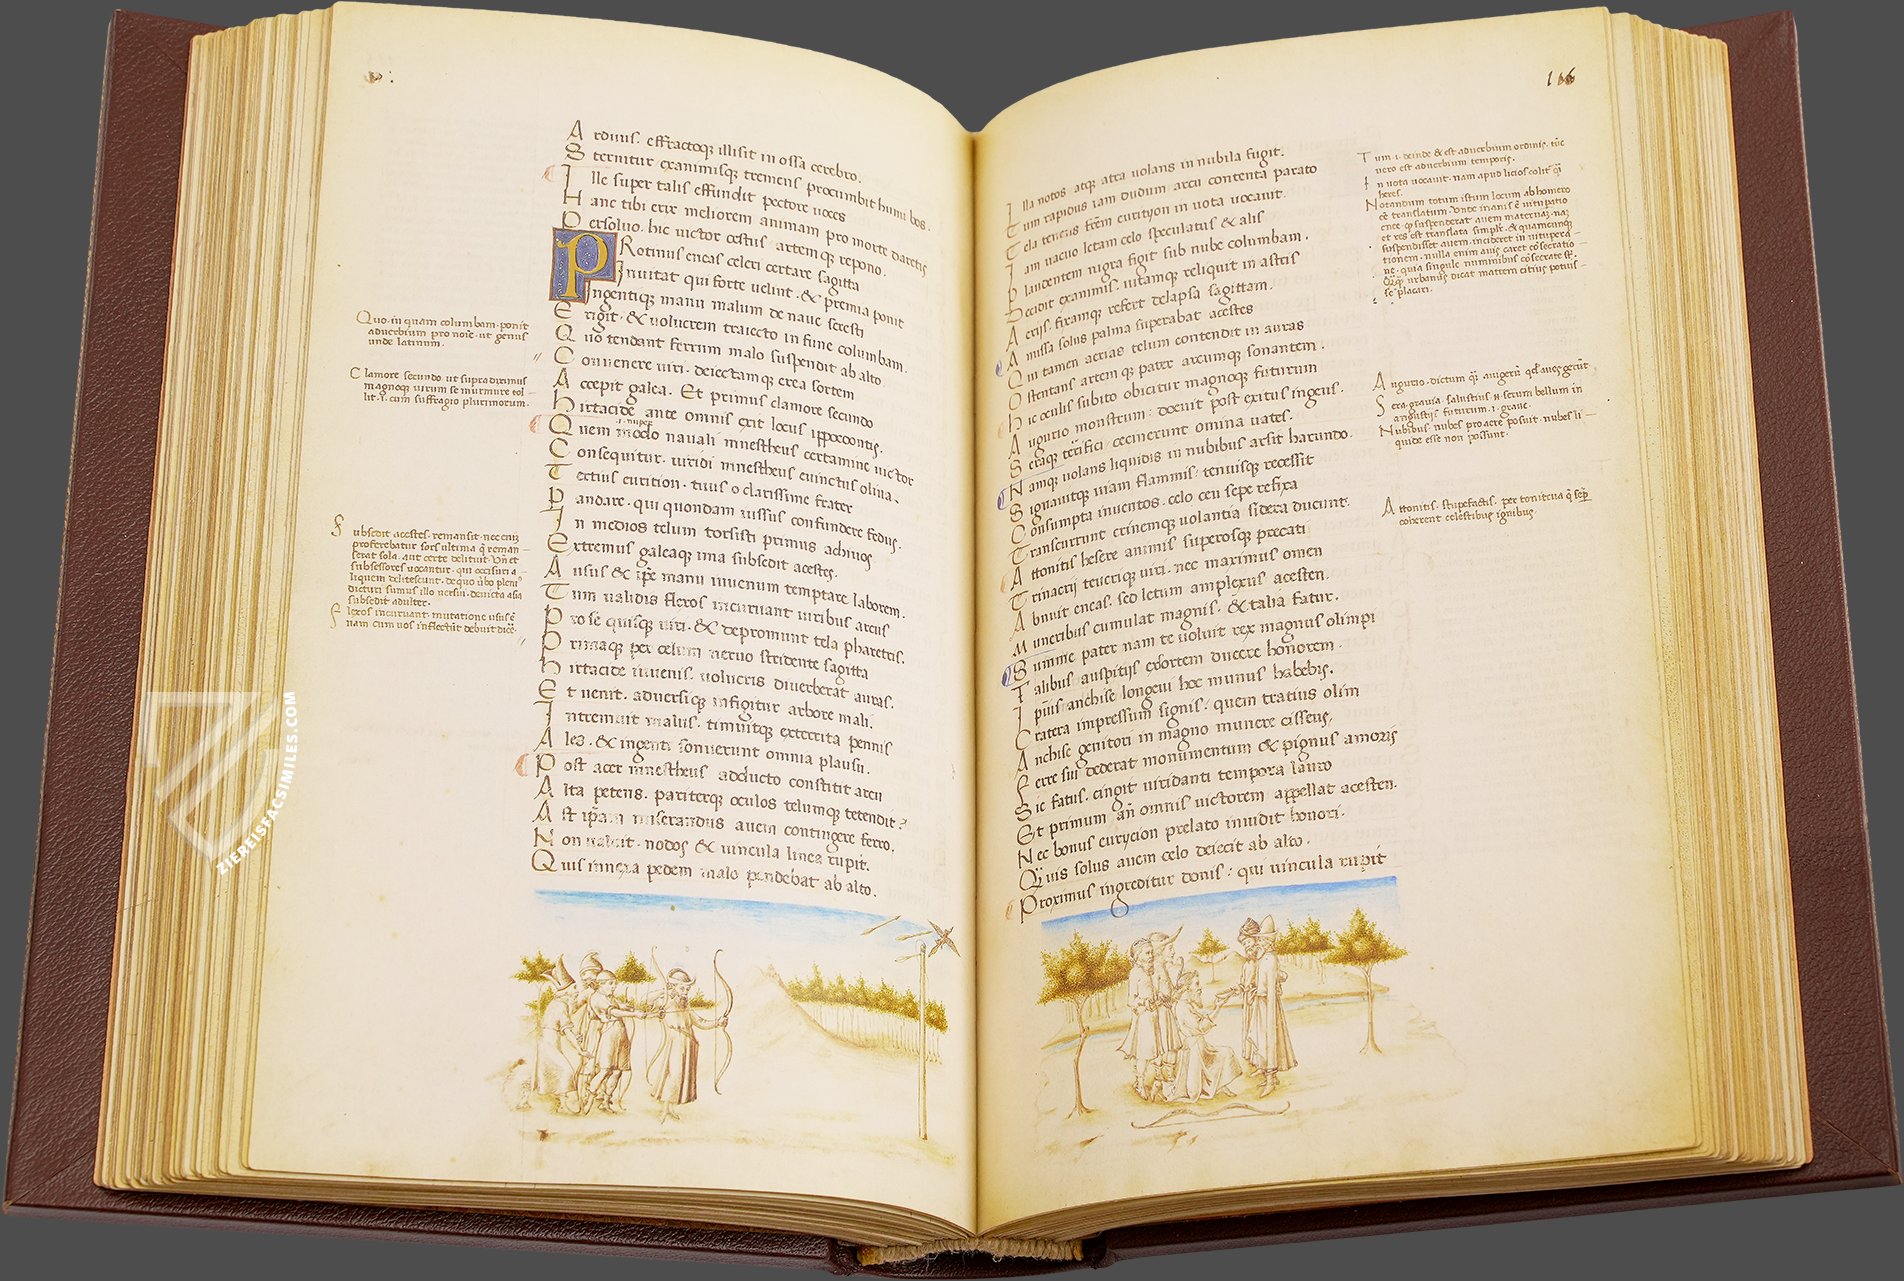 Arduus. effractoqꝫ illisit in ossa cerebro.
Sternitur. exanimisqꝫ tremens procumbit humi bos.
Ille super talis effundit pectore uoces
Hanc tibi erix meliorem animam pro morte daretis
Persoluo. hic uictor cestus artemqꝫ repono.
PRotinus eneas celeri certare sagitta
Inuitat qui forte uelint. & premia ponit
Ingentiqꝫ manu malum de naue seresti
Erigit. & uolucrem traiecto in fune columbam.
Quo tendant ferrum malo suspendit ab alto
Conuenere uiri. deiectamqꝫ erea sortem
Accepit galea. Et primus clamore secundo
hirtacide ante omnis exit locus ippocontis.
Quem modo nauali mnestheus certamine uictor
Consequitur. uiridi mnestheus euinctus oliua.
Tertius eurition. tuus o clarissime frater
Pandare. qui quondam iussus confundere fedus.
In medios telum torsisti primus achiuos
Extremus galeaqꝫ ima subsedit acestes.
Ausus & ip̄e manu iuuenum temptare laborem.
Tum ualidis flexos incuruant uiribus arcus
Pro se quisqꝫ uiri. & depromunt tela pharetris.
Primaqꝫ per celum neruo stridente sagitta
hirtacide iuuenis. uolucris diuerberat auras.
Et uenit. aduersiqꝫ infigitur arbore mali.
Intremuit malus. timuitqꝫ exterrita pennis
Ales. & ingenti sonuerunt omnia plausu.
Post acer mnestheus adducto constitit arcu
Alta petens. pariterqꝫ oculos telumqꝫ tetendit:
Ast ip̄am miserandus auem contingere ferro.
Non ualuit. nodos & uincula linea rupit.
Quis innexa pedem malo pendebat ab alto.
Quo. in quam columbam. ponit
aduerbium pro noīe. ut genus
unde latinum.
Clamore secundo. ut supra diximus
magnoqꝫ uirum se murmure tol-
lit. i. cum suffragio plurimorum.
Subsedit acestes. remansit. nec eniꝫ
proferebatur sors ultima q̄ reman-
serat sola. aut certe delituit. Vn̄ et
subsessores uocantur. qui occisuri a-
liquem delitescunt. de quo ūbo pleniꝰ
dicturi sumus illo uersui. deuicta asia
subsedit adulter.
Flexos incuruant. mutatione usus ē
nam cum uos inflectūt debuit dicē.
116
Illa notos atqꝫ atra uolans in nubila fugit.
Tum rapidus iam dudum arcu contenta parato
Tela tenens frēm eurityon in uota uocauit.
Iam uacuo letam celo speculatus & alis
Plaudentem nigra figit sub nube columbam.
Decidit exanimis. uitamqꝫ reliquit in astris
Aeriis. fixamqꝫ refert delapsa sagittam.
Amissa solus palma superabat acestes
Qui tamen aerias telum contendit in auras
Ostentans artemqꝫ pater arcumqꝫ sonantem.
hic oculis subito obicitur magnoqꝫ futurum
Augurio monstrum: docuit post exitus ingens.
Seraqꝫ terrifici cecinerunt omina uates.
Namqꝫ uolans liquidis in nubibus arsit harundo.
Signauitqꝫ uiam flammis. tenuisqꝫ recessit
Consumpta in uentos. celo ceu sepe refixa
Transcurrunt crinemqꝫ uolantia sidera ducunt.
Attonitis hesere animis superosqꝫ precati
Trinacrii teucriqꝫ uiri. nec maximus omen
Abnuit eneas. sed letum amplexus acesten.
Muneribus cumulat magnis. & talia fatur.
Summe pater nam te uoluit rex magnus olimpi
Talibus auspitijs exortem ducere honorem.
Ipsius anchise longeui hoc munus habebis.
Cratera impressum signis. quem tratius olim
Anchise genitori in magno munere cisseus.
Ferre sui dederat monumentum & pignus amoris
Sic fatus. cingit uiridanti tempora lauro
Et primum añ omnis uictorem appellat acesten.
Nec bonus eurycion prelato inuidit honori.
Quis solus auem celo deiecit ab alto.
Proximus ingreditur donis: qui uincula rupit
Tum. i. deinde & est aduerbium ordinis. tūc
uero est aduerbium temporis.
In uota uocauit. nam apud licios colit̄ q̄si
heres.
Notandum totum istum locum ab homero
ēē translatum
Augurio. dictum qͥ. augeriū qd̄ aues gerūt
Sera. grauia. salustius
angustijs futurum. i. graue.
Nubibus. nubes pro aere posuit. nubes li-
quide esse non possunt.
Attonitis. stupefactis. per tonitrua q̄ sēp
coherent celestibus ignibus.
ZIEREISFACSIMILES.COM